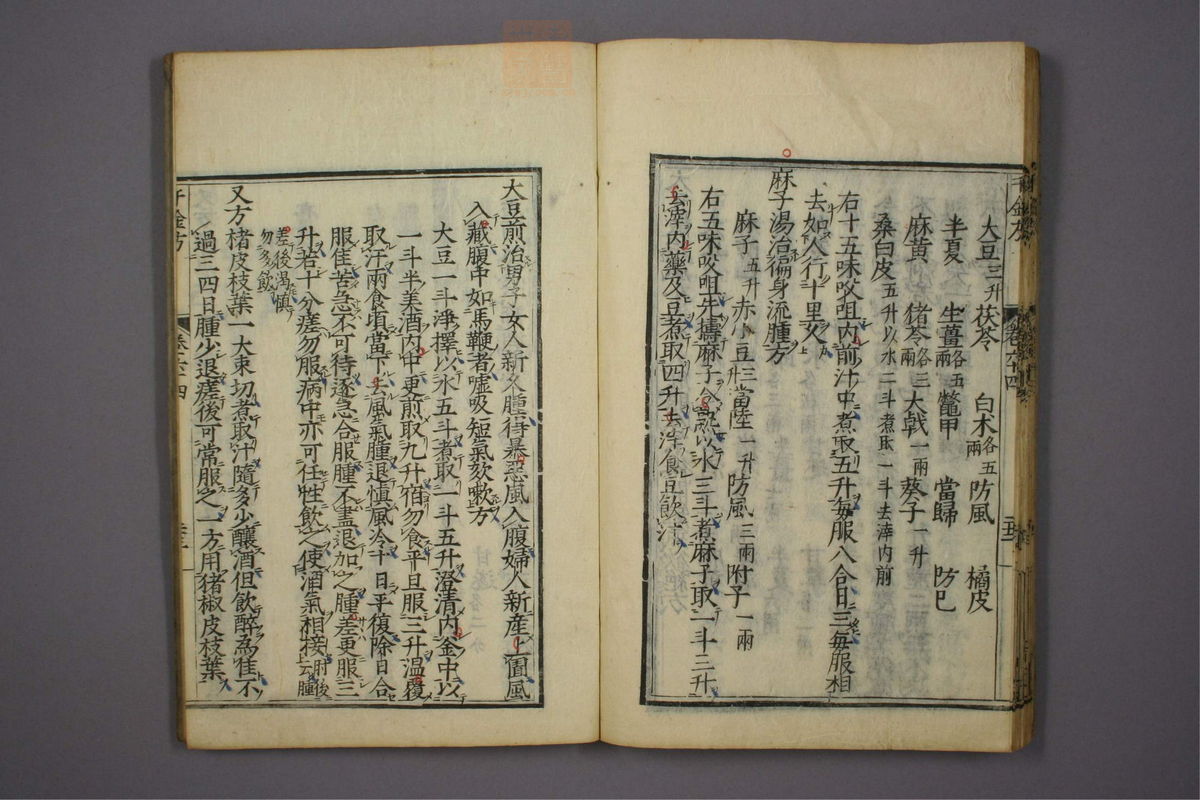 千金方 卷六十四
大豆三升 茯苓 白朮各五兩 防風 橘皮
半夏 生薑各五兩 鼈甲 當歸 防己
麻黃 猪苓各三兩 大戟一兩 葵子一升
桑白皮五升以水二斗煮取一斗去滓内前
右十五味㕮咀内前汁中煮取五升每服八合日三每服相
去如人行十里久
麻子湯治徧身流腫方
麻子五升 赤小豆三升 當陸一升 防風三兩 附子一兩
右五味㕮咀先擣麻子令熟以水三斗煮麻子取一斗三升
去滓内藥及豆煮取四升去滓食豆飲汁
大豆煎治男子女人新久腫得暴惡風入腹婦人新產上圊風
入藏腹中如馬鞭者嘘吸短氣欬嗽方
大豆一斗淨擇以水五斗煮取一斗五升澄清内釜中以
一斗半美酒内中更煎取九升宿勿食平旦服三升温覆
取汗兩食頃當下去風氣腫退慎風冷十日平復除日合
服隹苦急不可待逐急合服腫不盡退加之腫差更服三
升若十分瘥勿服病中亦可任性飲之使酒氣相接肘後云腫
差後渴慎勿多飲
又方楮皮枝葉一大束切煮取汁隨多少釀酒但飲醉為隹不
過三四日腫少退瘥後可常服之一方用猪椒皮枝葉
千金方 卷六十四